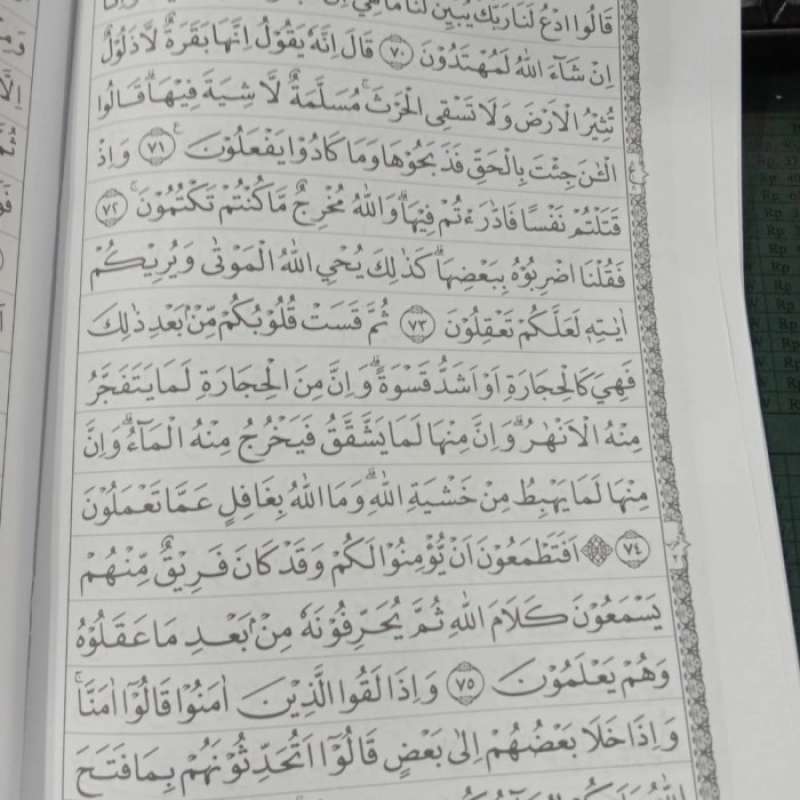 قَالُوا ادْعُ لَنَا رَبَّكَ يُبَيِّنْ لَّنَا مَا هِيَ
اِنْ شَاۤءَ اللّٰهُ لَمُهْتَدُوْنَ ٧٠ قَالَ اِنَّهٗ يَقُوْلُ اِنَّهَا بَقَرَةٌ لَّا ذَلُوْلٌ
تُثِيْرُ الْاَرْضَ وَلَا تَسْقِى الْحَرْثَۚ مُسَلَّمَةٌ لَّا شِيَةَ فِيْهَاۗ قَالُوا
الْـٰٔنَ جِئْتَ بِالْحَقِّ فَذَبَحُوْهَا وَمَا كَادُوْا يَفْعَلُوْنَ ࣖ ٧١ وَاِذْ
قَتَلْتُمْ نَفْسًا فَادّٰرَءْتُمْ فِيْهَاۗ وَاللّٰهُ مُخْرِجٌ مَّا كُنْتُمْ تَكْتُمُوْنَۚ ٧٢
فَقُلْنَا اضْرِبُوْهُ بِبَعْضِهَاۗ كَذٰلِكَ يُحْيِ اللّٰهُ الْمَوْتٰى وَيُرِيْكُمْ
اٰيٰتِهٖ لَعَلَّكُمْ تَعْقِلُوْنَ ٧٣ ثُمَّ قَسَتْ قُلُوْبُكُمْ مِّنْۢ بَعْدِ ذٰلِكَ
فَهِيَ كَالْحِجَارَةِ اَوْ اَشَدُّ قَسْوَةًۗ وَاِنَّ مِنَ الْحِجَارَةِ لَمَا يَتَفَجَّرُ
مِنْهُ الْاَنْهٰرُۗ وَاِنَّ مِنْهَا لَمَا يَشَّقَّقُ فَيَخْرُجُ مِنْهُ الْمَاۤءُۗ وَاِنَّ
مِنْهَا لَمَا يَهْبِطُ مِنْ خَشْيَةِ اللّٰهِۗ وَمَا اللّٰهُ بِغَافِلٍ عَمَّا تَعْمَلُوْنَ
٧٤ ۞ اَفَتَطْمَعُوْنَ اَنْ يُّؤْمِنُوْا لَكُمْ وَقَدْ كَانَ فَرِيْقٌ مِّنْهُمْ
يَسْمَعُوْنَ كَلَامَ اللّٰهِ ثُمَّ يُحَرِّفُوْنَهٗ مِنْۢ بَعْدِ مَا عَقَلُوْهُ
وَهُمْ يَعْلَمُوْنَ ٧٥ وَاِذَا لَقُوا الَّذِيْنَ اٰمَنُوْا قَالُوْٓا اٰمَنَّاۚ
وَاِذَا خَلَا بَعْضُهُمْ اِلٰى بَعْضٍ قَالُوْٓا اَتُحَدِّثُوْنَهُمْ بِمَا فَتَحَ